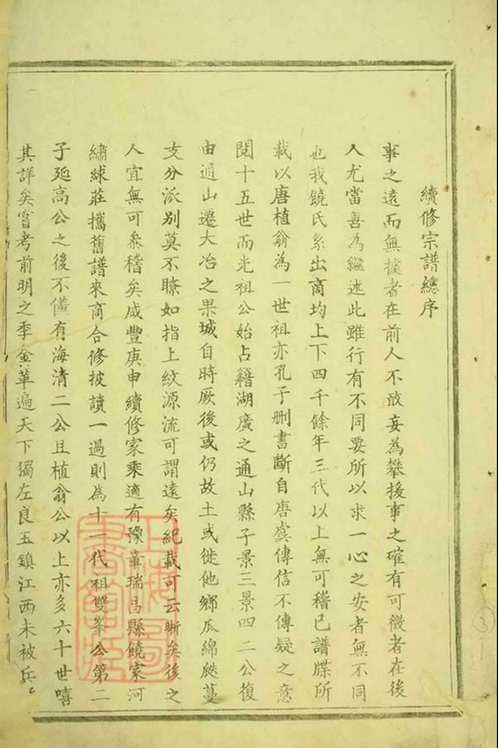 續修宗譜總序
事之遠而無據者在前人不敢妄為攀援事之確有可徵者在後
人尤當善為繼述此雖行有不同要所以求一心之安者無不同
也我饒氏系出商均上下四千餘年三代以上無可稽已譜牒所
載以唐植翁為一世祖亦孔子刪書斷自唐虞傳信不傳疑之意
閱十五世而光祖公始占籍湖廣之通山縣子景三景四二公復
由通山遷大冶之果城自時厥後或仍故土或徙他鄉瓜綿瓞蔓
支分派別莫不瞭如指上紋源流可謂遠矣紀載可云晰矣後之
人宜無可叅稽矣咸豐庚申續修家乘適有豫章瑞昌縣饒家河
繡球莊攜舊譜來商合修披讀一過則為十一代祖雙峯公第二
子延高公之後不備有海清二公且植翁公以上亦多六十世嘻
其詳矣嘗考前明之季金革遍天下獨左良玉鎮江西未被兵